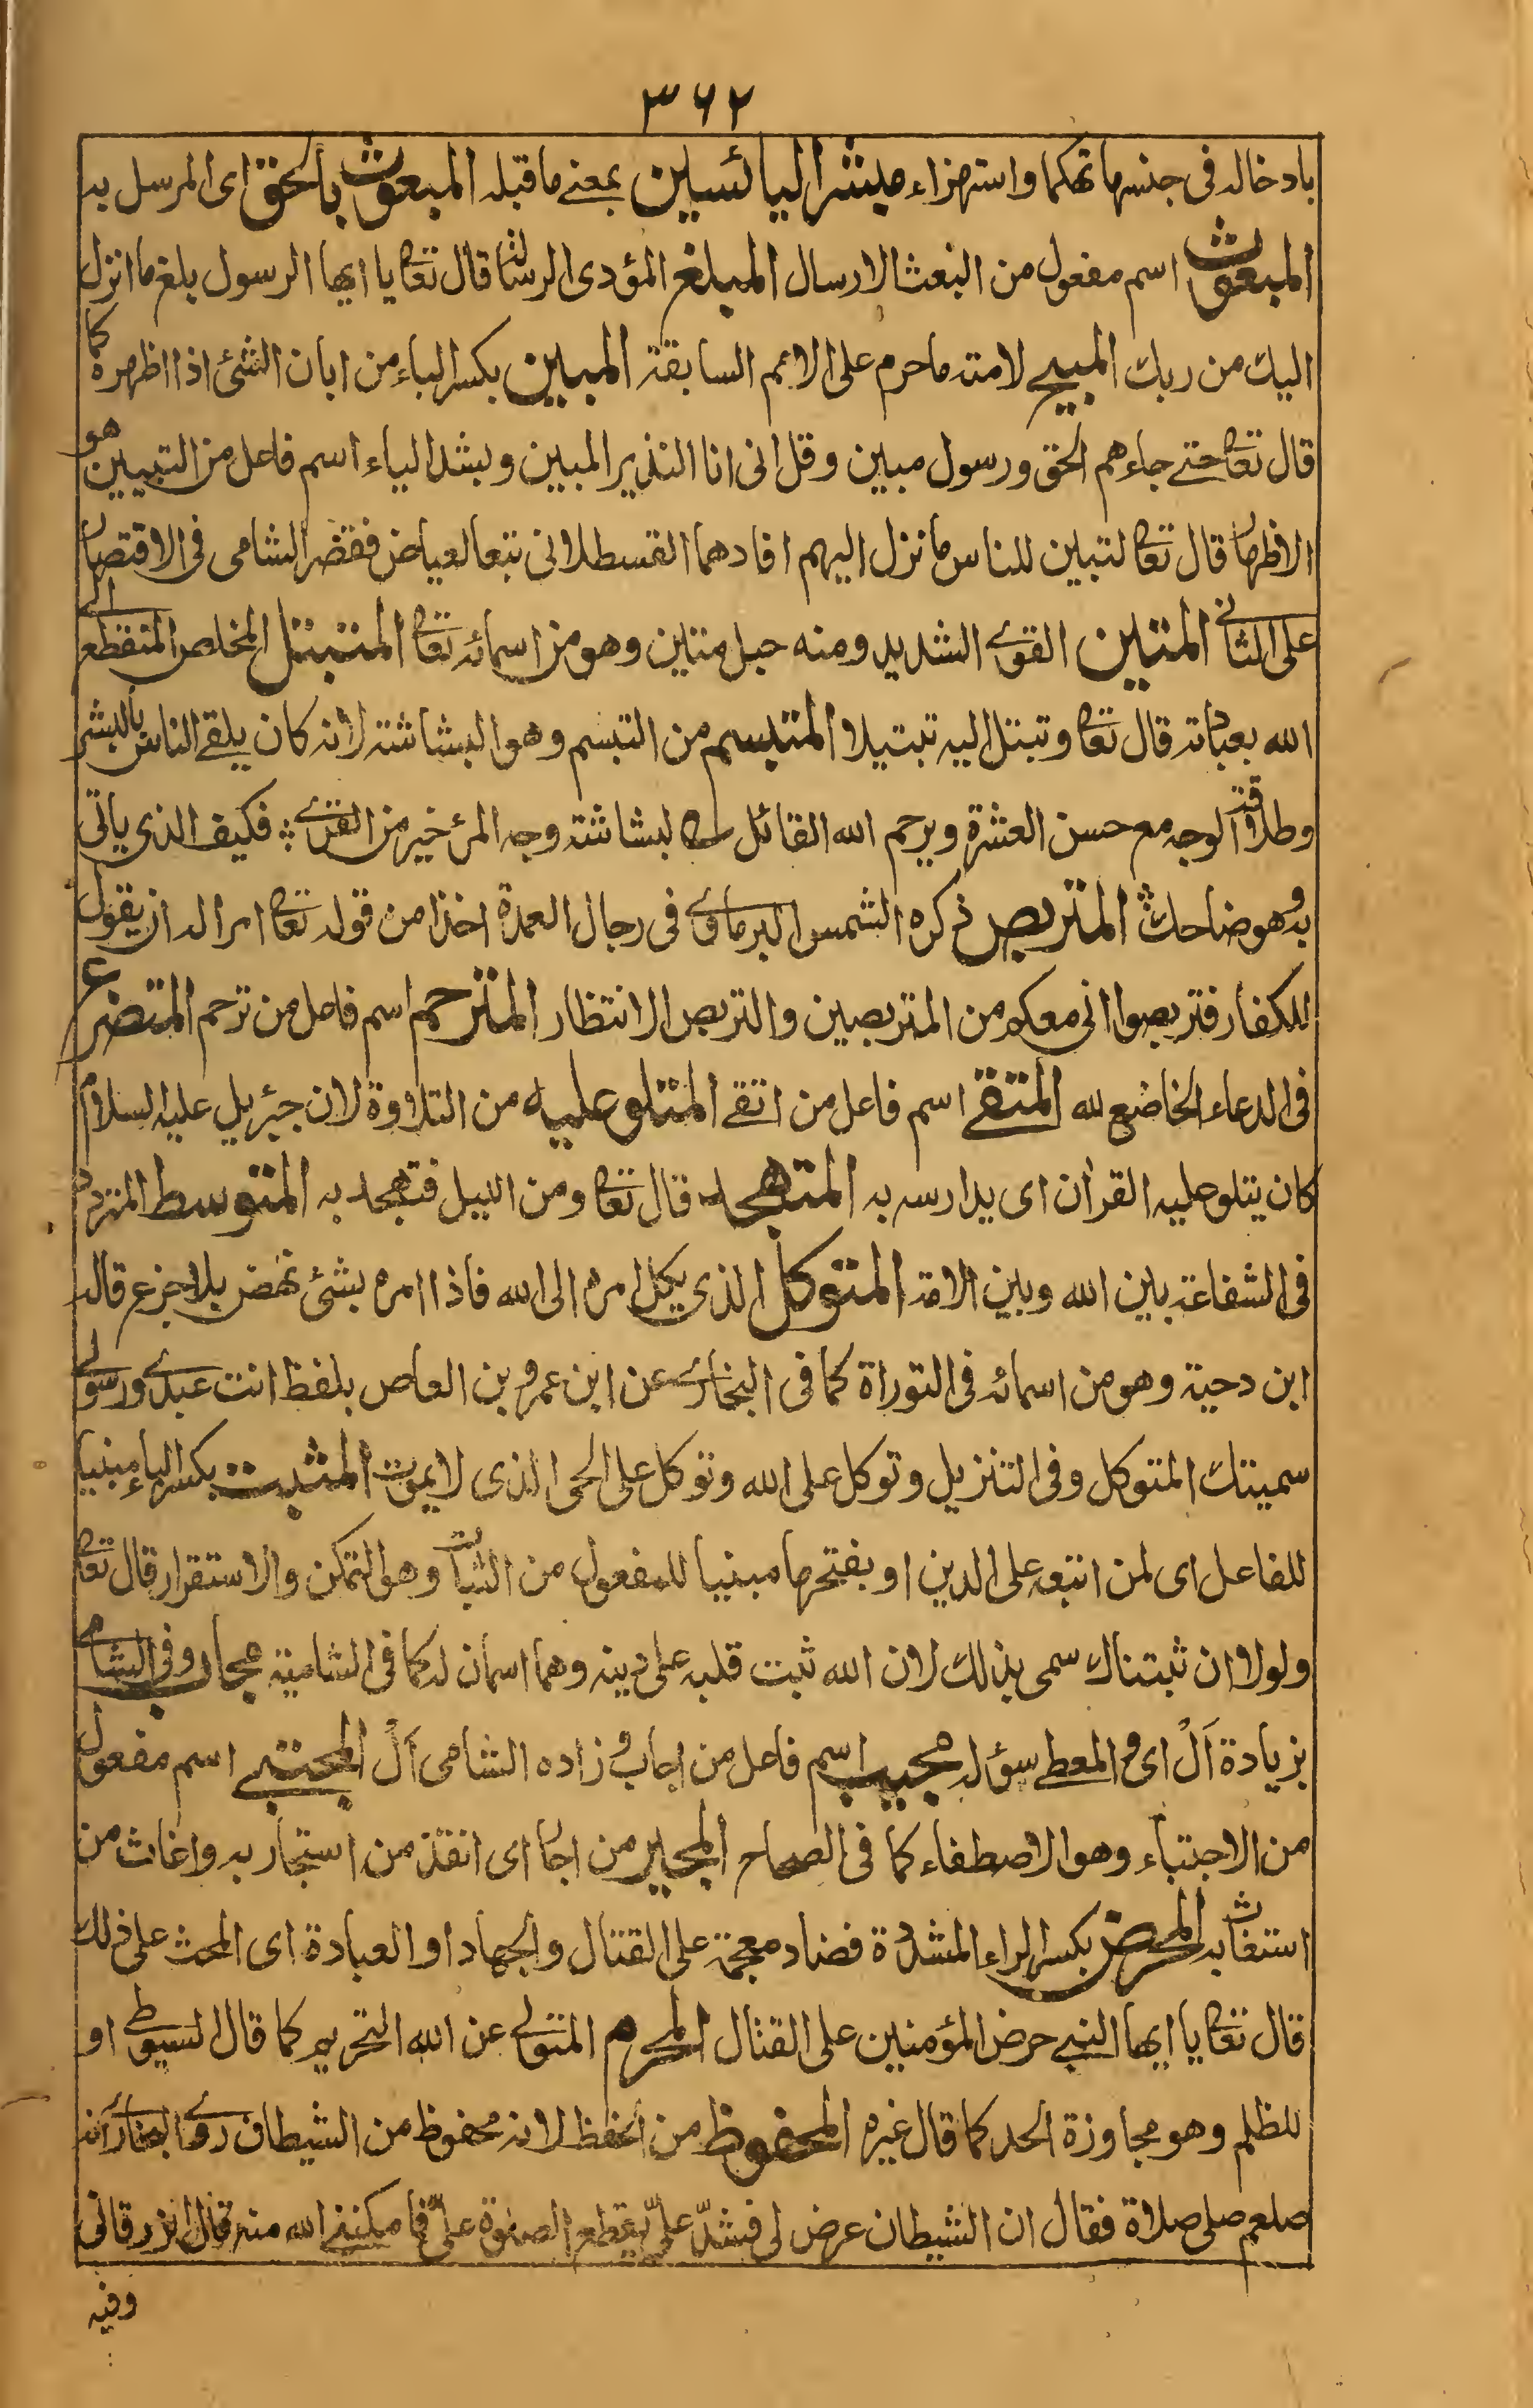 ٣٦٢
بادخاله فى جنسها تهكما واستهزاء مبشر اليائسين بمعنے ما قبله المبعوث بالحق اى المرسل به
المبعوث اسم مفعول من البعث الارسال المبلغ المؤدى الرسالة قال تعا يا ايها الرسول بلغ ما انزل
اليك من ربك المبيح لامته ما حرم على الامم السابقة المبين بكسر الباء من ابان الشئ اذا اظهره كما
قال تعا حتے جاءهم الحق ورسول مبين وقل انى انا النذير المبين وبشد الياء اسم فاعل من التبيين هو
الاظهار قال تعا لتبين للناس ما نزل اليهم افادهما القسطلانى تبعا لعياض فقصر الشامى فى الاقتصار
على الثانى المتين القوے الشديد ومنه حبل متين وهو من اسمائه تعا المتبتل المخلص المنقطع الى
الله بعبادته قال تعا وتبتل اليه تبتيلا المتبسم من التبسم وهو البشاشة لانه كان يلقے الناس بالبشر
وطلاقة الوجه مع حسن العشرة ويرحم الله القائل لبشاشة وجه المرئ خير من القرے ؞ فكيف الذى ياتى
به وهو ضاحك ؞ المتربص ذكره الشمس البرماوے فى رجال العمدة اخذا من قوله تعا امرا له ان يقول
للكفار فتربصوا انى معكم من المتربصين والتربص الانتظار المترحم اسم فاعل من ترحم المتضرع
فى الدعاء الخاضع لله المتقے اسم فاعل من اتقے المتلو عليه من التلاوة لان جبرئيل عليه السلام
كان يتلو عليه القرأن اى يدارسه به المتهجد قال تعا ومن الليل فتهجد به المتوسط المتردد
فى الشفاعة بين الله وبين الامة المتوكل الذى يكل امره الى الله فاذا امره بشئ نهض بلا جزع قاله
ابن دحية وهو من اسمائه فى التوراة كما فى البخارے عن ابن عمرو بن العاص بلفظ انت عبدے ورسولے
سميتك المتوكل وفى التنزيل وتوكل على الله وتوكل على الحى الذى لا يموت المثبت بكسر الباء مبنيا
للفاعل اى لمن اتبعه على الدين او بفتحها مبنيا للمفعول من الثبات وهو التمكن والاستقرار قال تعا
ولولا ان ثبتناك سمى بذلك لان الله ثبت قلبه على دينه وهما اسمان له كما فى الشامية مجاب وفى الشامى
بزيادة اَلْ اى المعطے سؤله مجيب اسم فاعل من اجاب وزاده الشامى اَلْ المجتبے اسم مفعول
من الاجتباء وهو الاصطفاء كما فى الصحاح المجير من اجار اى انقذ من استجار به واغاث من
استغاث به المحرض بكسر الراء المشددة فضاد معجمة على القتال والجهاد او العبادة اى المحث على ذلك
قال تعا يا ايها النبے حرض المؤمنين على القتال المحرم المتولے عن الله التحريم كما قال السيوطے او
للظلم وهو مجاوزة الحد كما قال غيره المحفوظ من الحفظ لانه محفوظ من الشيطان روے البخارے انه
صلعم صلى صلاة فقال ان الشيطان عرض لى فشدّ علىّ يقطع الصلوة علىّ فامكننے الله منه قال الزرقانى
وفيه